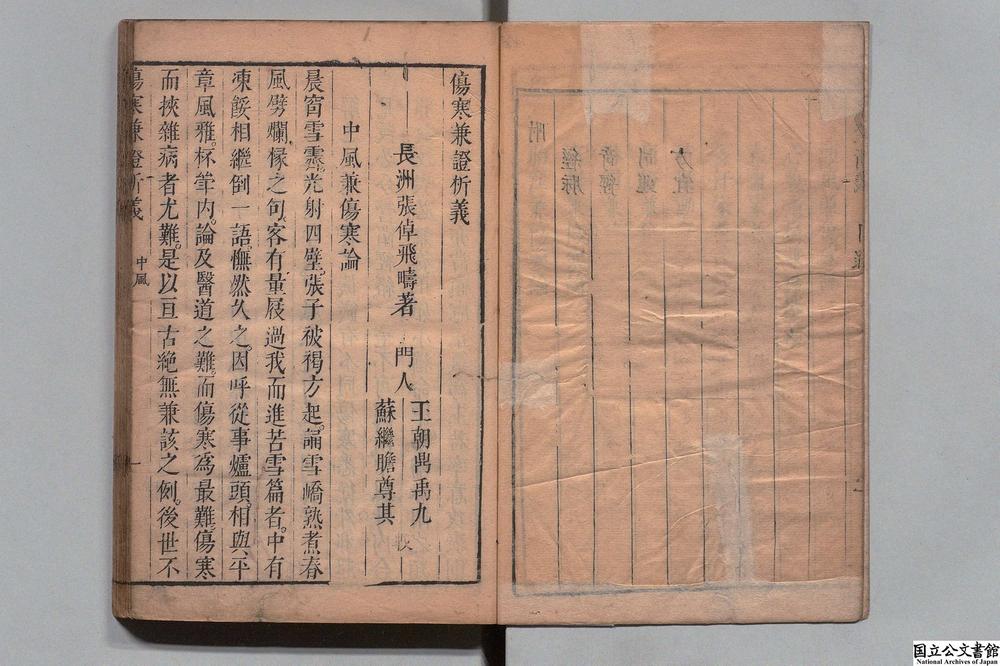 附
經脉
奇經
司運
方宜
傷寒兼證析義
長洲張倬飛疇著 門人
王朝禹九
蘇繼瞻尊其
中風兼傷寒論
晨窗雪霽光射四壁張子被褐方起論雪嶠熟煮春
風劈爛椽之句客有量屐過我而進苦雪篇者中有
凍餒相繼倒一語憮然久之因呼從事爐頭相與平
章風雅杯筆內論及醫道之難而傷寒為最難傷寒
而挾雜病者尤難是以亘古絶無兼該之例後世不
傷寒兼證析義 中風 一
国立公文書館
National Archives of Japan